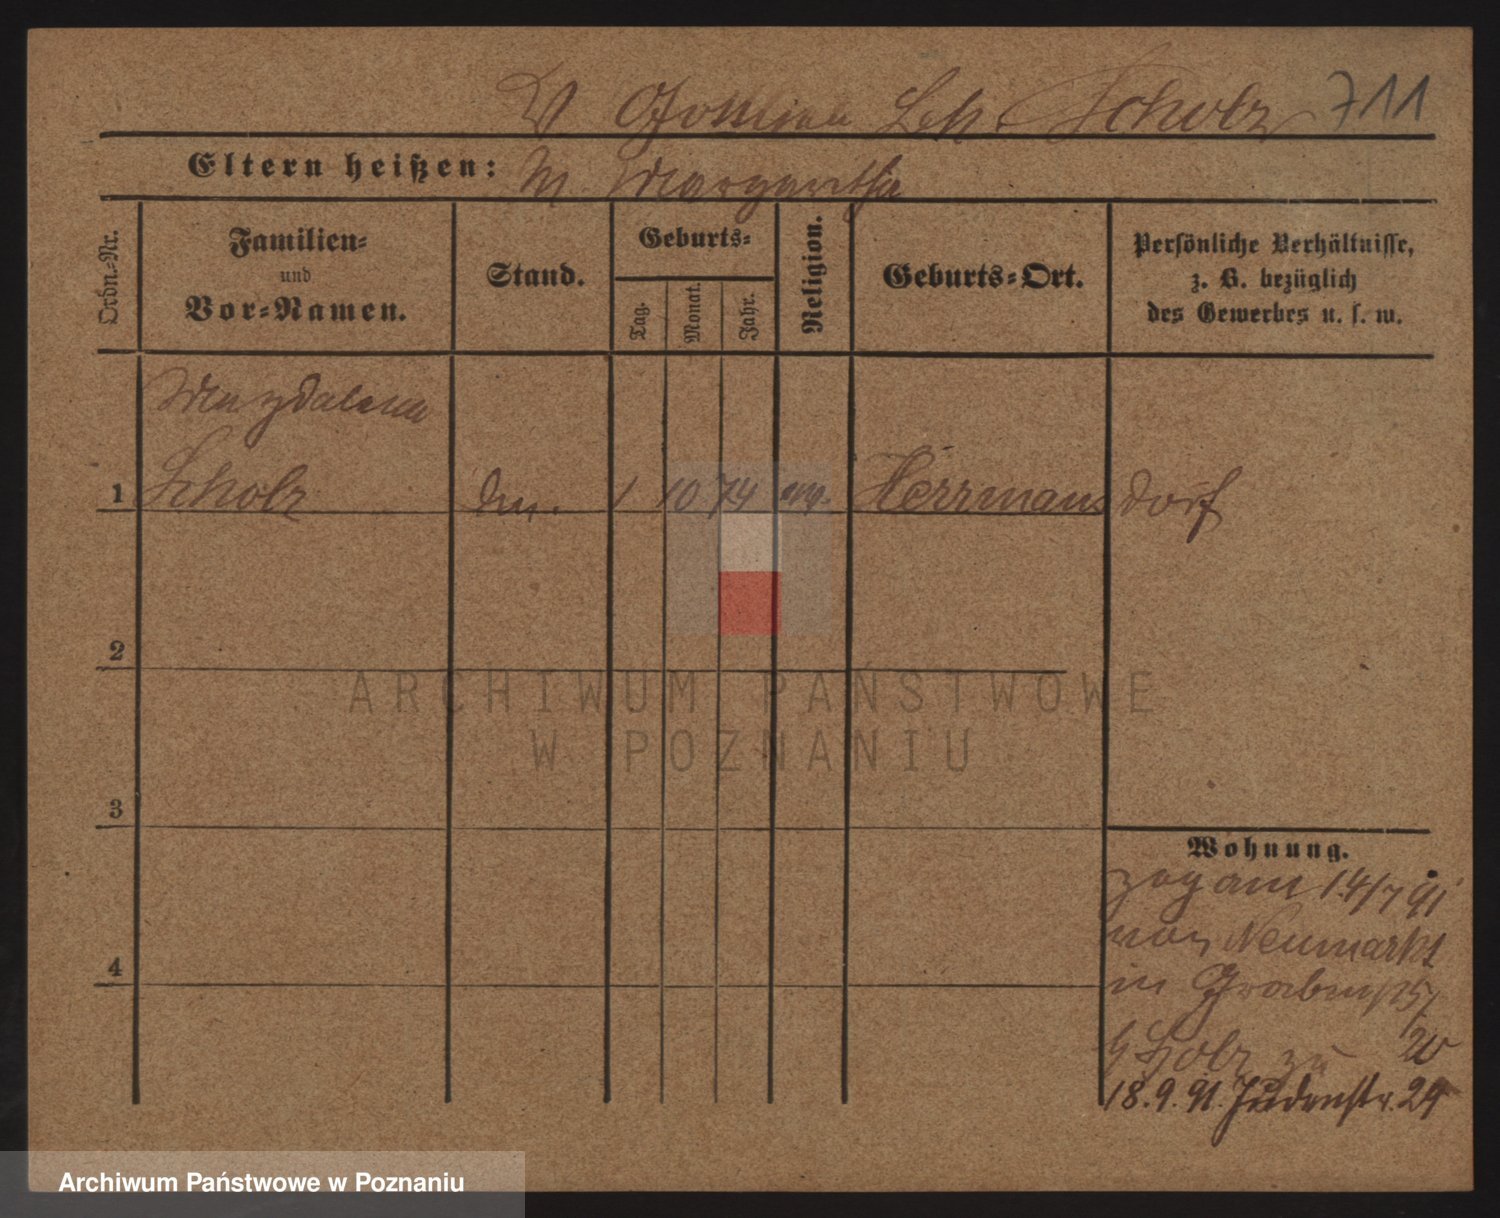 V Gottlieb Sch. Scholz 711
Eltern heißen: M. Margaretha
Ordn.-Nr.
Familien-
und
Vor-Namen.
Stand.
Geburts-
Tag.
Monat.
Jahr.
Religion.
Geburts-Ort.
Persönliche Verhältnisse,
z. B. bezüglich
des Gewerbes u. s. w.
Magdalena
1 Scholz 1 10 74 Herrmansdorf
2
3
4
Wohnung.
zog am 14/7 91
von Neumarkt
in
zu 20
18.9.91. Judenstr. 29
ARCHIWUM PAŃSTWOWE
W POZNANIU
Archiwum Państwowe w Poznaniu